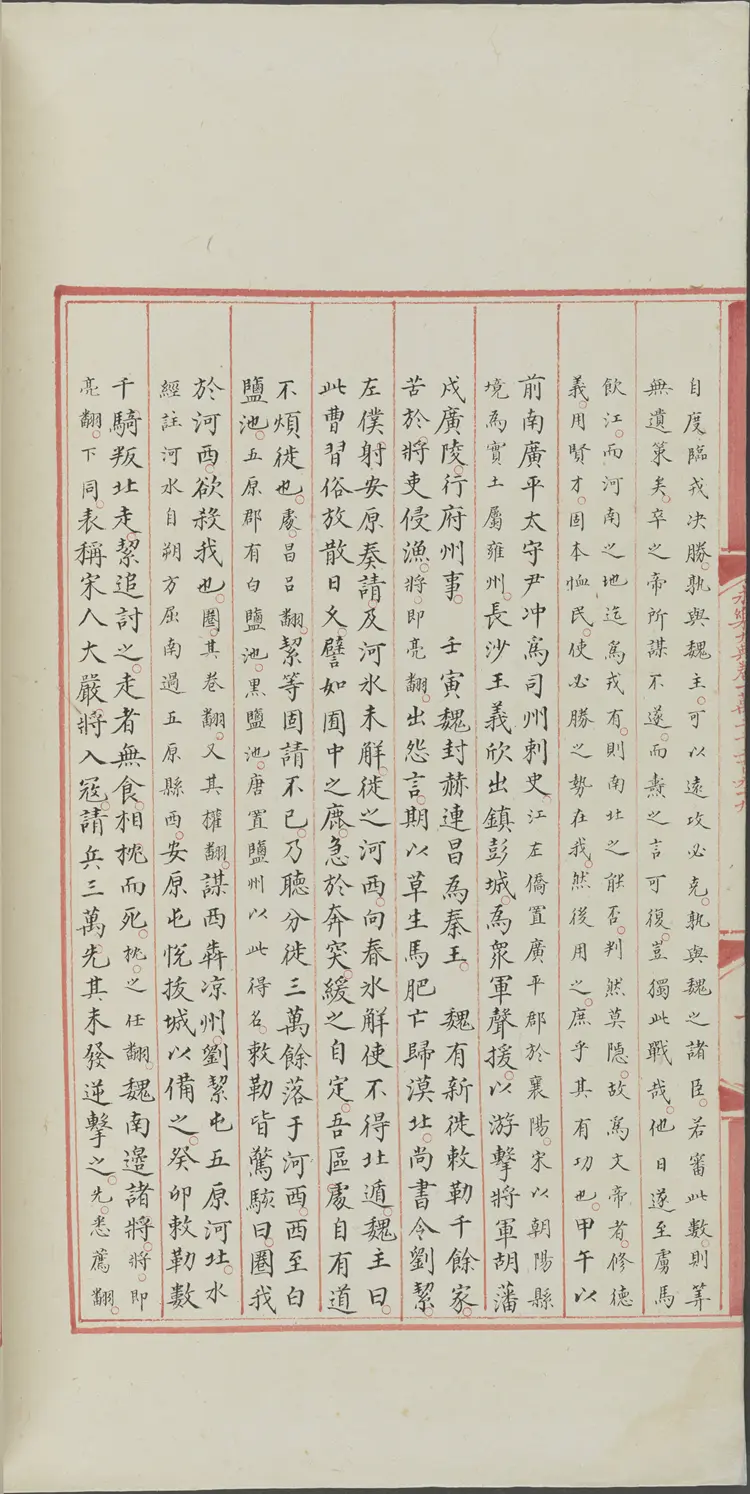 自度。臨戎决勝。孰與魏主。可以遠攻必克。孰與魏之諸臣。若審此數。則筭
無遺策矣。卒之帝所謀不遂。而燾之言可復。豈獨此戰哉。他日遂至虜馬
飲江。而河南之地迄爲戎有。則南北之能否。判然莫隱。故爲文帝者。修德
義。用賢才。固本恤民。使必勝之勢在我。然後用之。庶乎其有功也。甲午以
前南廣平太守尹冲爲司州刺史。江左僑置廣平郡於襄陽。宋以朝陽縣
境爲實土屬雍州。長沙王義欣出鎮彭城。爲衆軍聲援。以游擊將軍胡藩
戍廣陵。行府州事。 壬寅魏封赫連昌爲秦王。 魏有新徙敕勒千餘家。
苦於。將吏侵漁。將。即亮翻。出怨言。期以草生馬肥亡歸漠北。尚書令劉絜。
左僕。射安原奏請。及河氷未解。徙之河西。向春氷解使不得北遁。魏主曰。
此曹習俗放散日久。譬如囿中之鹿。急於奔突。緩之自定。吾區處自有道
不煩徙也。處。昌呂翻。絜等固請不已。乃聽分徙三萬餘落于河西。西至白
鹽池。五原郡有白鹽池。黑鹽池。唐置鹽州以此得名。敕勒皆驚駭曰。圈我
於河西。欲殺我也。圈。其卷翻。又其權翻。謀西奔凉州。劉絜屯五原河北。水
經註河水自朔方屈南過五原縣西。安原屯悅拔城以備之。癸卯敕勒數
千騎叛北走。絜追討之。走者無食。相枕而死。枕。之任翻。魏南邊諸將。將。即
亮翻。下同。表稱宋人大嚴。將入寇。請兵三萬。先其未發逆擊之。先。悉薦翻。